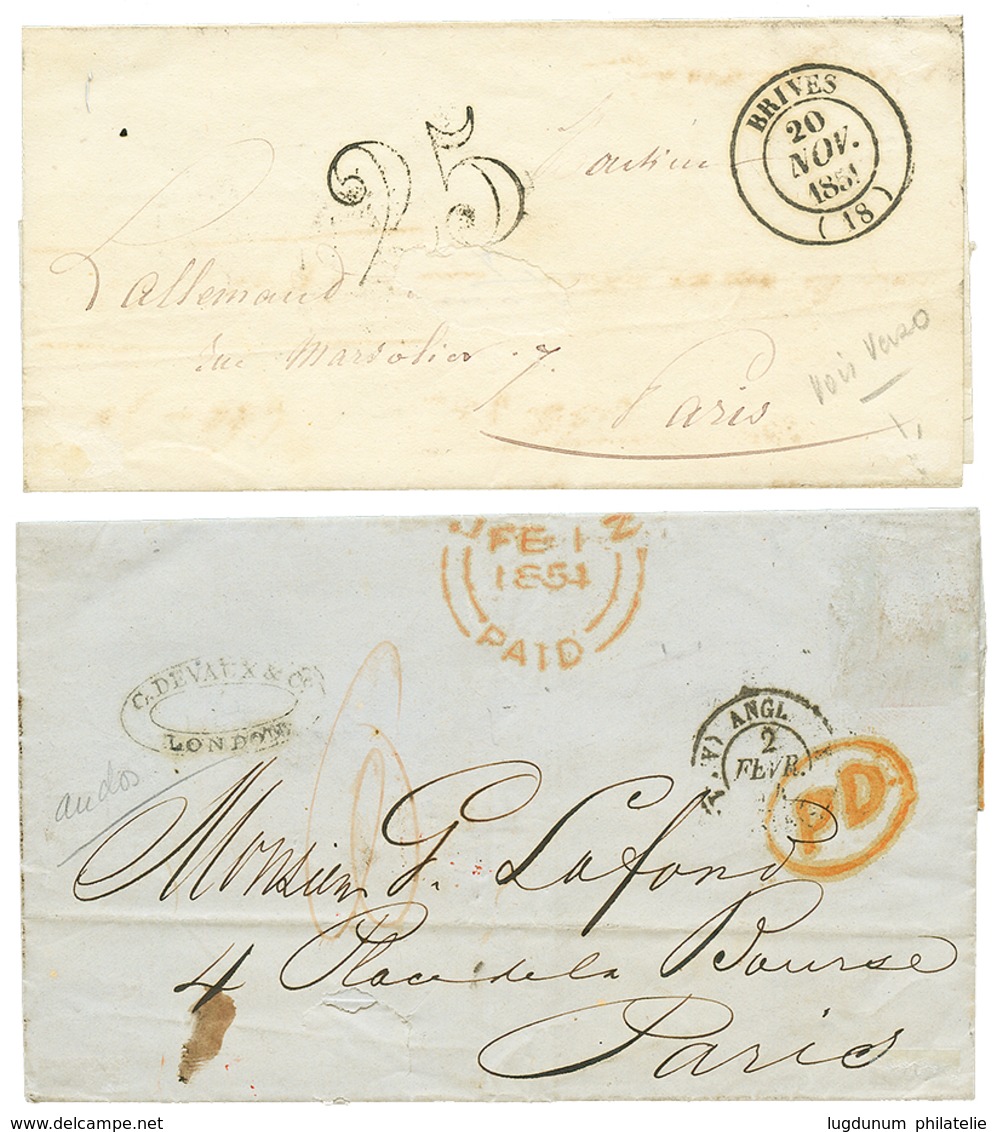 BRIVES
20
NOV.
1851
(18)
25
Lallemand
rue Marsolier 7
Paris
Voir Verso
FE 1 2
1851
PAID
C. DEVAUX & Co
LONDON
ANGL.
2
FEVR.
PD
6
au dos
Monsieur G. Lafond
4 Place de la Bourse
Paris
delcampe.net
lugdunum philatelie